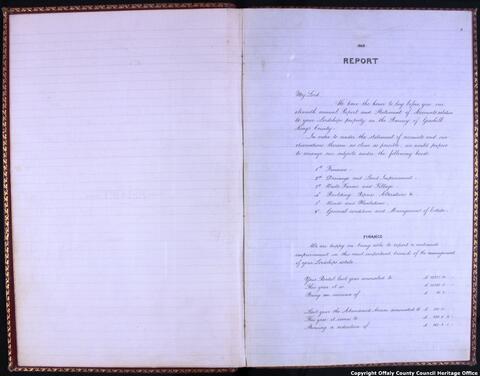 REPORT
My Lord
We have the honor to lay before you our
eleventh annual Report and Statement of Accounts relative
to your Lordships property in the Barony of Geashill
Kings County.
In order to render the statement of accounts and our
observations thereon as clear as possible, we would propose
to arrange our subjects under the following heads
1st Finance.
2nd Drainage and Land Improvement.
3rd Waste Farms and Tillage.
4th Building Repairs Alterations &c
5th Woods and Plantations.
6th General condition and Management of Estate.
FINANCE
We are happy in being able to report a continued
improvement in this most important branch of the management
of your Lordships estate.
Your Rental last year amounted to £
This year it is £
Being an increase of £
Last year the Abandoned Arrear amounted to £
This year it comes to £
Shewing a reduction of £
Copyright Offaly County Council Heritage Office